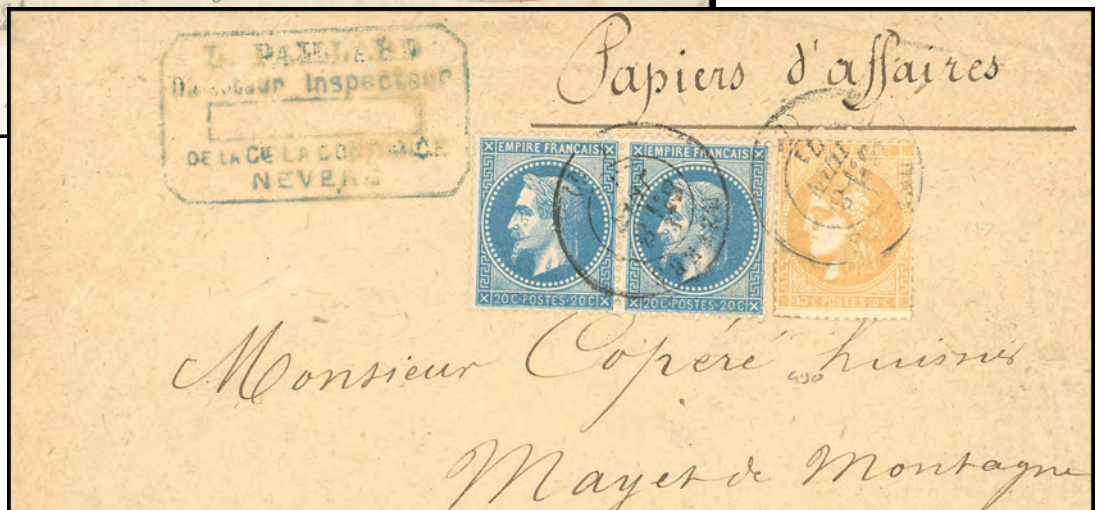 L. PAILLARD
Directeur Inspecteur
DE LA CIE LA CONFIANCE
NEVERS
Papiers d'affaires
EMPIRE FRANÇAIS
20C·POSTES·20C
EMPIRE FRANÇAIS
20C·POSTES·20C
10C·POSTES·10C
Monsieur Copéré huissier
490
Mayet de Montagne